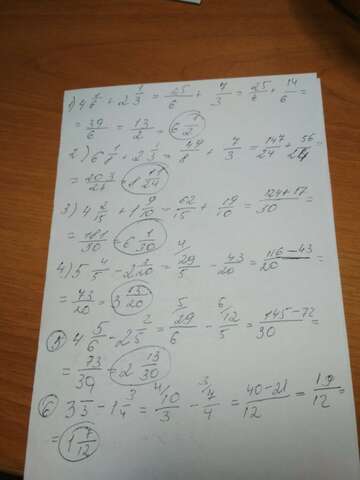 1) 4 1/6 + 2 1/3 = 25/6 + 7/3 = 25/6 + 14/6 =
= 39/6 = 13/2 = 6 1/2
2) 6 1/8 + 2 1/3 = 49/8 + 7/3 = 147/24 + 56/24 =
= 203/24 = 11/24
3) 4 2/15 + 1 9/10 = 62/15 + 19/10 = 124+57/30 =
= 181/30 = 6 1/30
4) 5 4/5 - 2 3/20 = 29/5 - 43/20 = 116-43/20 =
= 73/20 = 3 13/20
5) 4 5/6 - 2 2/5 = 29/6 - 12/5 = 145-72/30 =
= 73/30 = 2 13/30
6 3 1/3 - 1 3/4 = 10/3 - 7/4 = 40-21/12 = 19/12 =
= 1 7/12